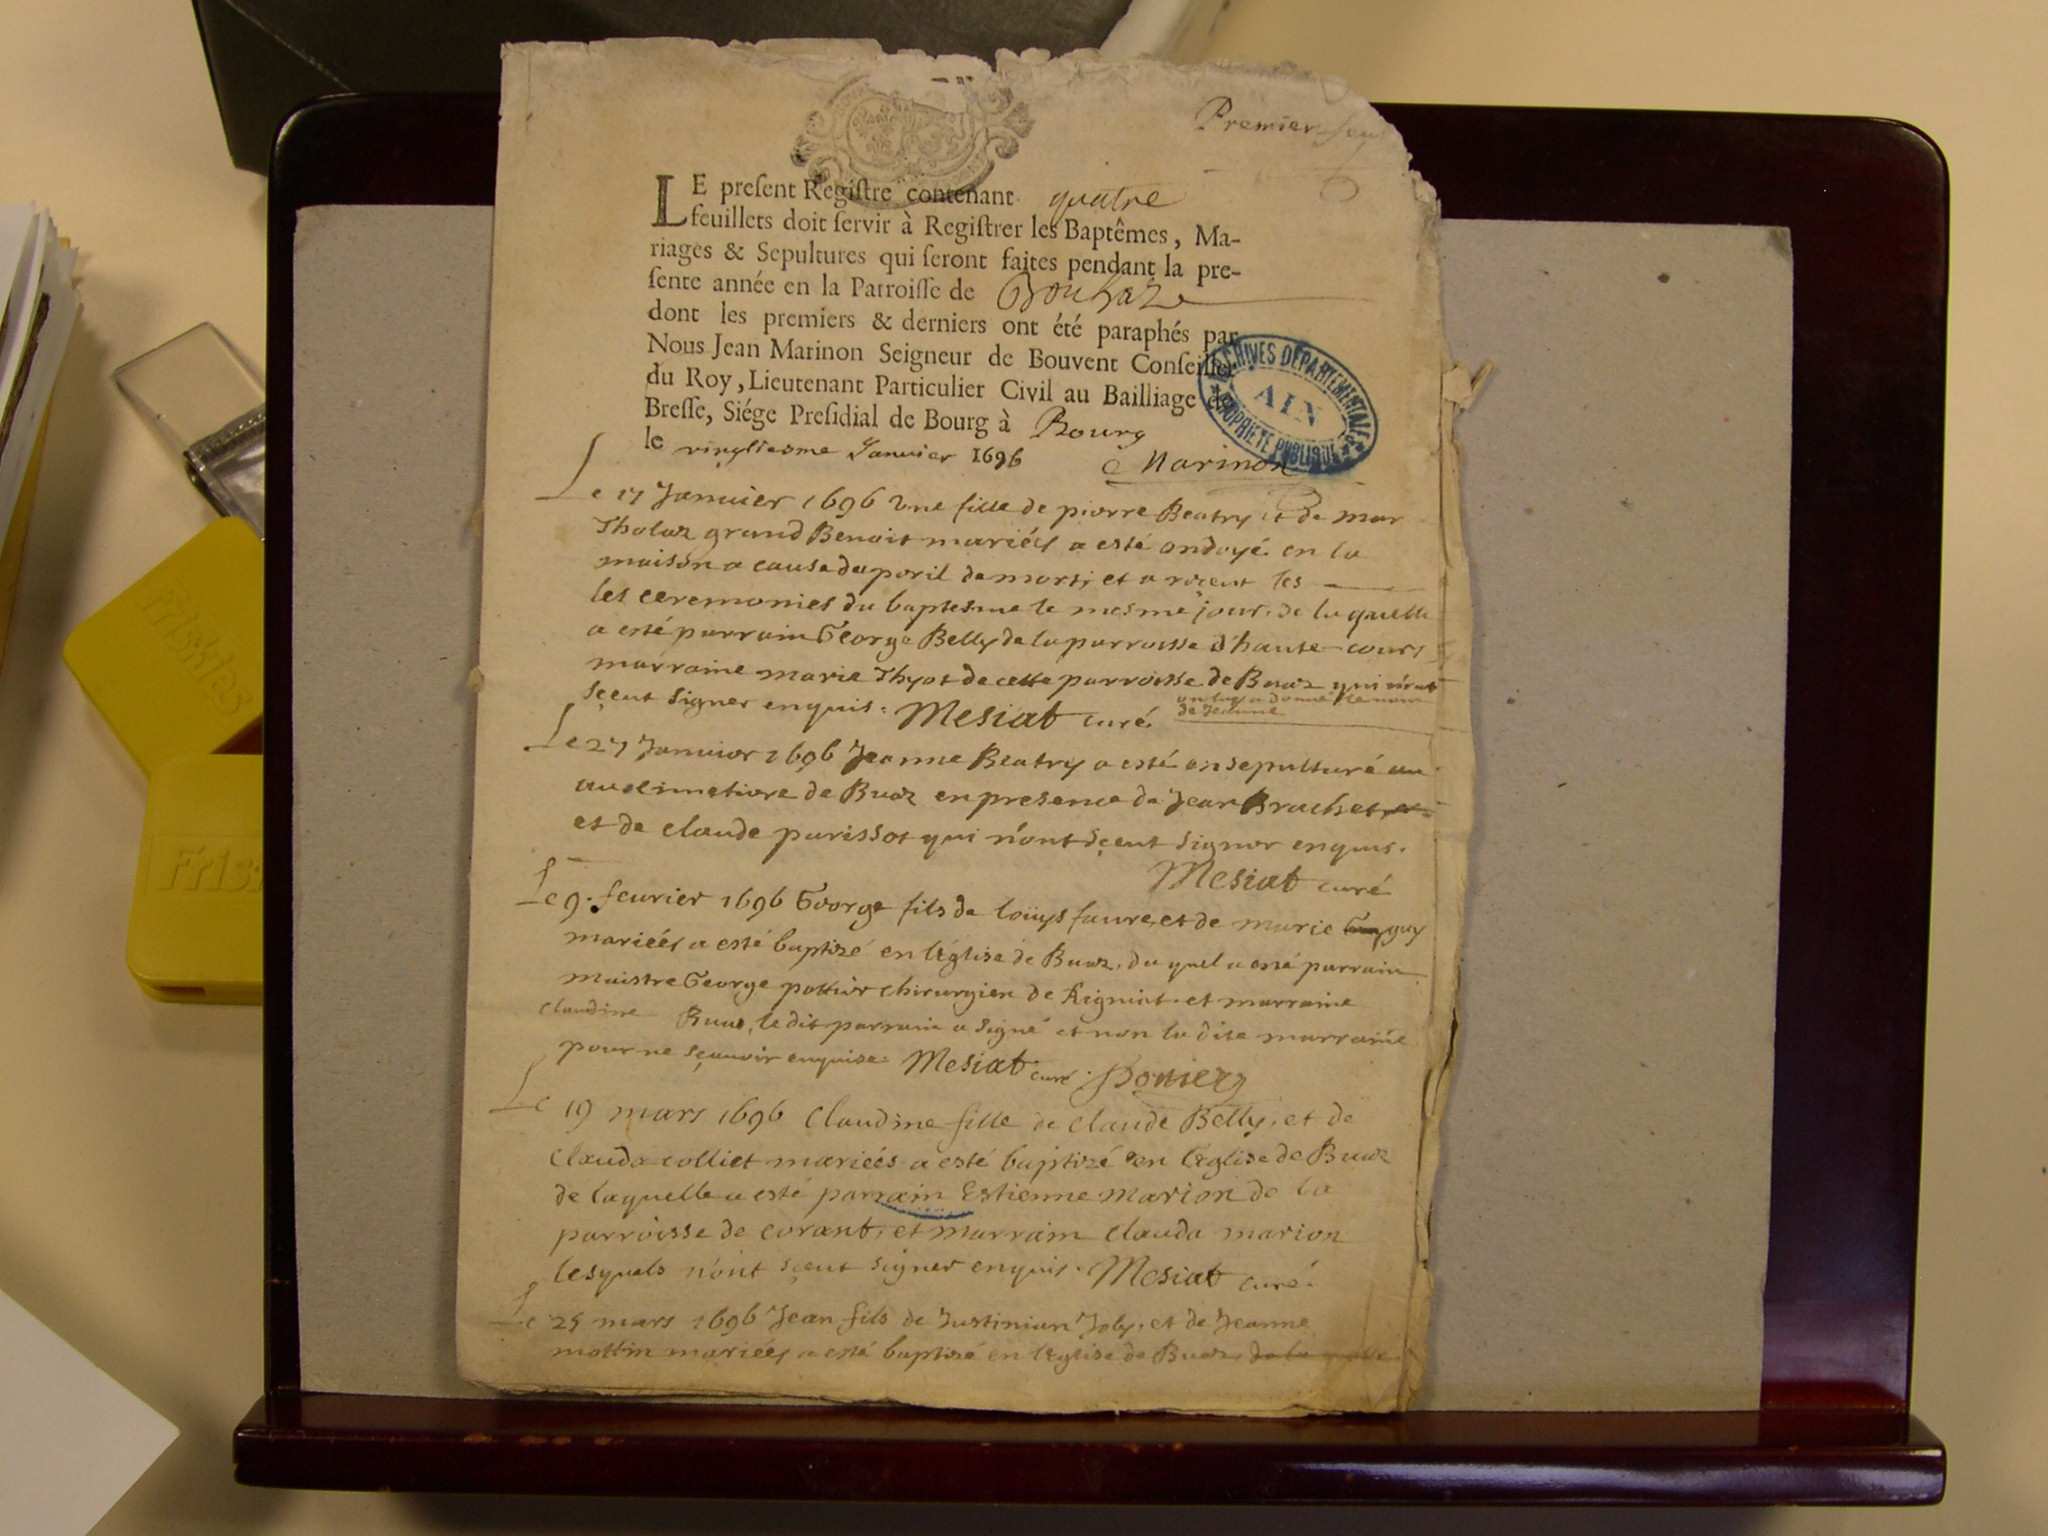 Premier feu
LE preſent Regiſtre contenant quatre
feuillets doit ſervir à Regiſtrer les Baptêmes, Ma-
riages & Sepultures qui ſeront faites pendant la pre-
ſente année en la Parroiſſe de Bouhaz
dont les premiers & derniers ont été paraphés par
Nous Jean Marinon Seigneur de Bouvent Conſeiller
du Roy, Lieutenant Particulier Civil au Bailliage de
Breſſe, Siége Preſidial de Bourg à Bourg
le vingtiesme Janvier 1696 Marinon
ARCHIVES DEPARTEMENTALES
AIN
PROPRIETE PUBLIQUE
Le 17 Janvier 1696 Une fille de pierre Beatry et de mar
Tholaz grand Benoit mariées a esté ondoyé en la
maison a cause du peril de mort, et a receut les
les ceremonies du baptesme le mesme jour. de laquelle
a esté parrain George Belly de la parroisse d'haute-cours
marraine marie Thyot de cette parroisse de Buaz qui n'ont
sçeut signer enquis: Mesiat curé. on luy a donné le nom
de Jeanne
Le 27 Janvier 1696 Jeanne Beatry a esté ensepulturé au
au cimetiere de Buaz en presence de Jean Brachet et
et de claude parissot qui n'ont sçeut signer enquis.
Mesiat curé
Le 9. fevrier 1696 George fils de loüys faure, et de marie guy
mariées a esté baptizé en l'église de Buaz. du quel a esté parrain
maistre George pottier chirurgien de Rigniat. et marraine
claudine Buaz, le dit parrain a signé et non la dite marraine
pour ne sçavoir enquise: Mesiat curé. Pottier
Le 19 mars 1696 Claudine fille de claude Belly. et de
Clauda colliet mariées a esté baptizé en l'église de Buaz
de laquelle a esté parrain Estienne Marion de la
parroisse de corant, et marrain Clauda marion
lesquels n'ont sçeut signer enquis. Mesiat curé.
Le 25 mars 1696 Jean fils de Justinian Joly. et de Jeanne
mottin mariées a esté baptizé en l'église de Buaz, de la quelle
Frisklas
Frisk